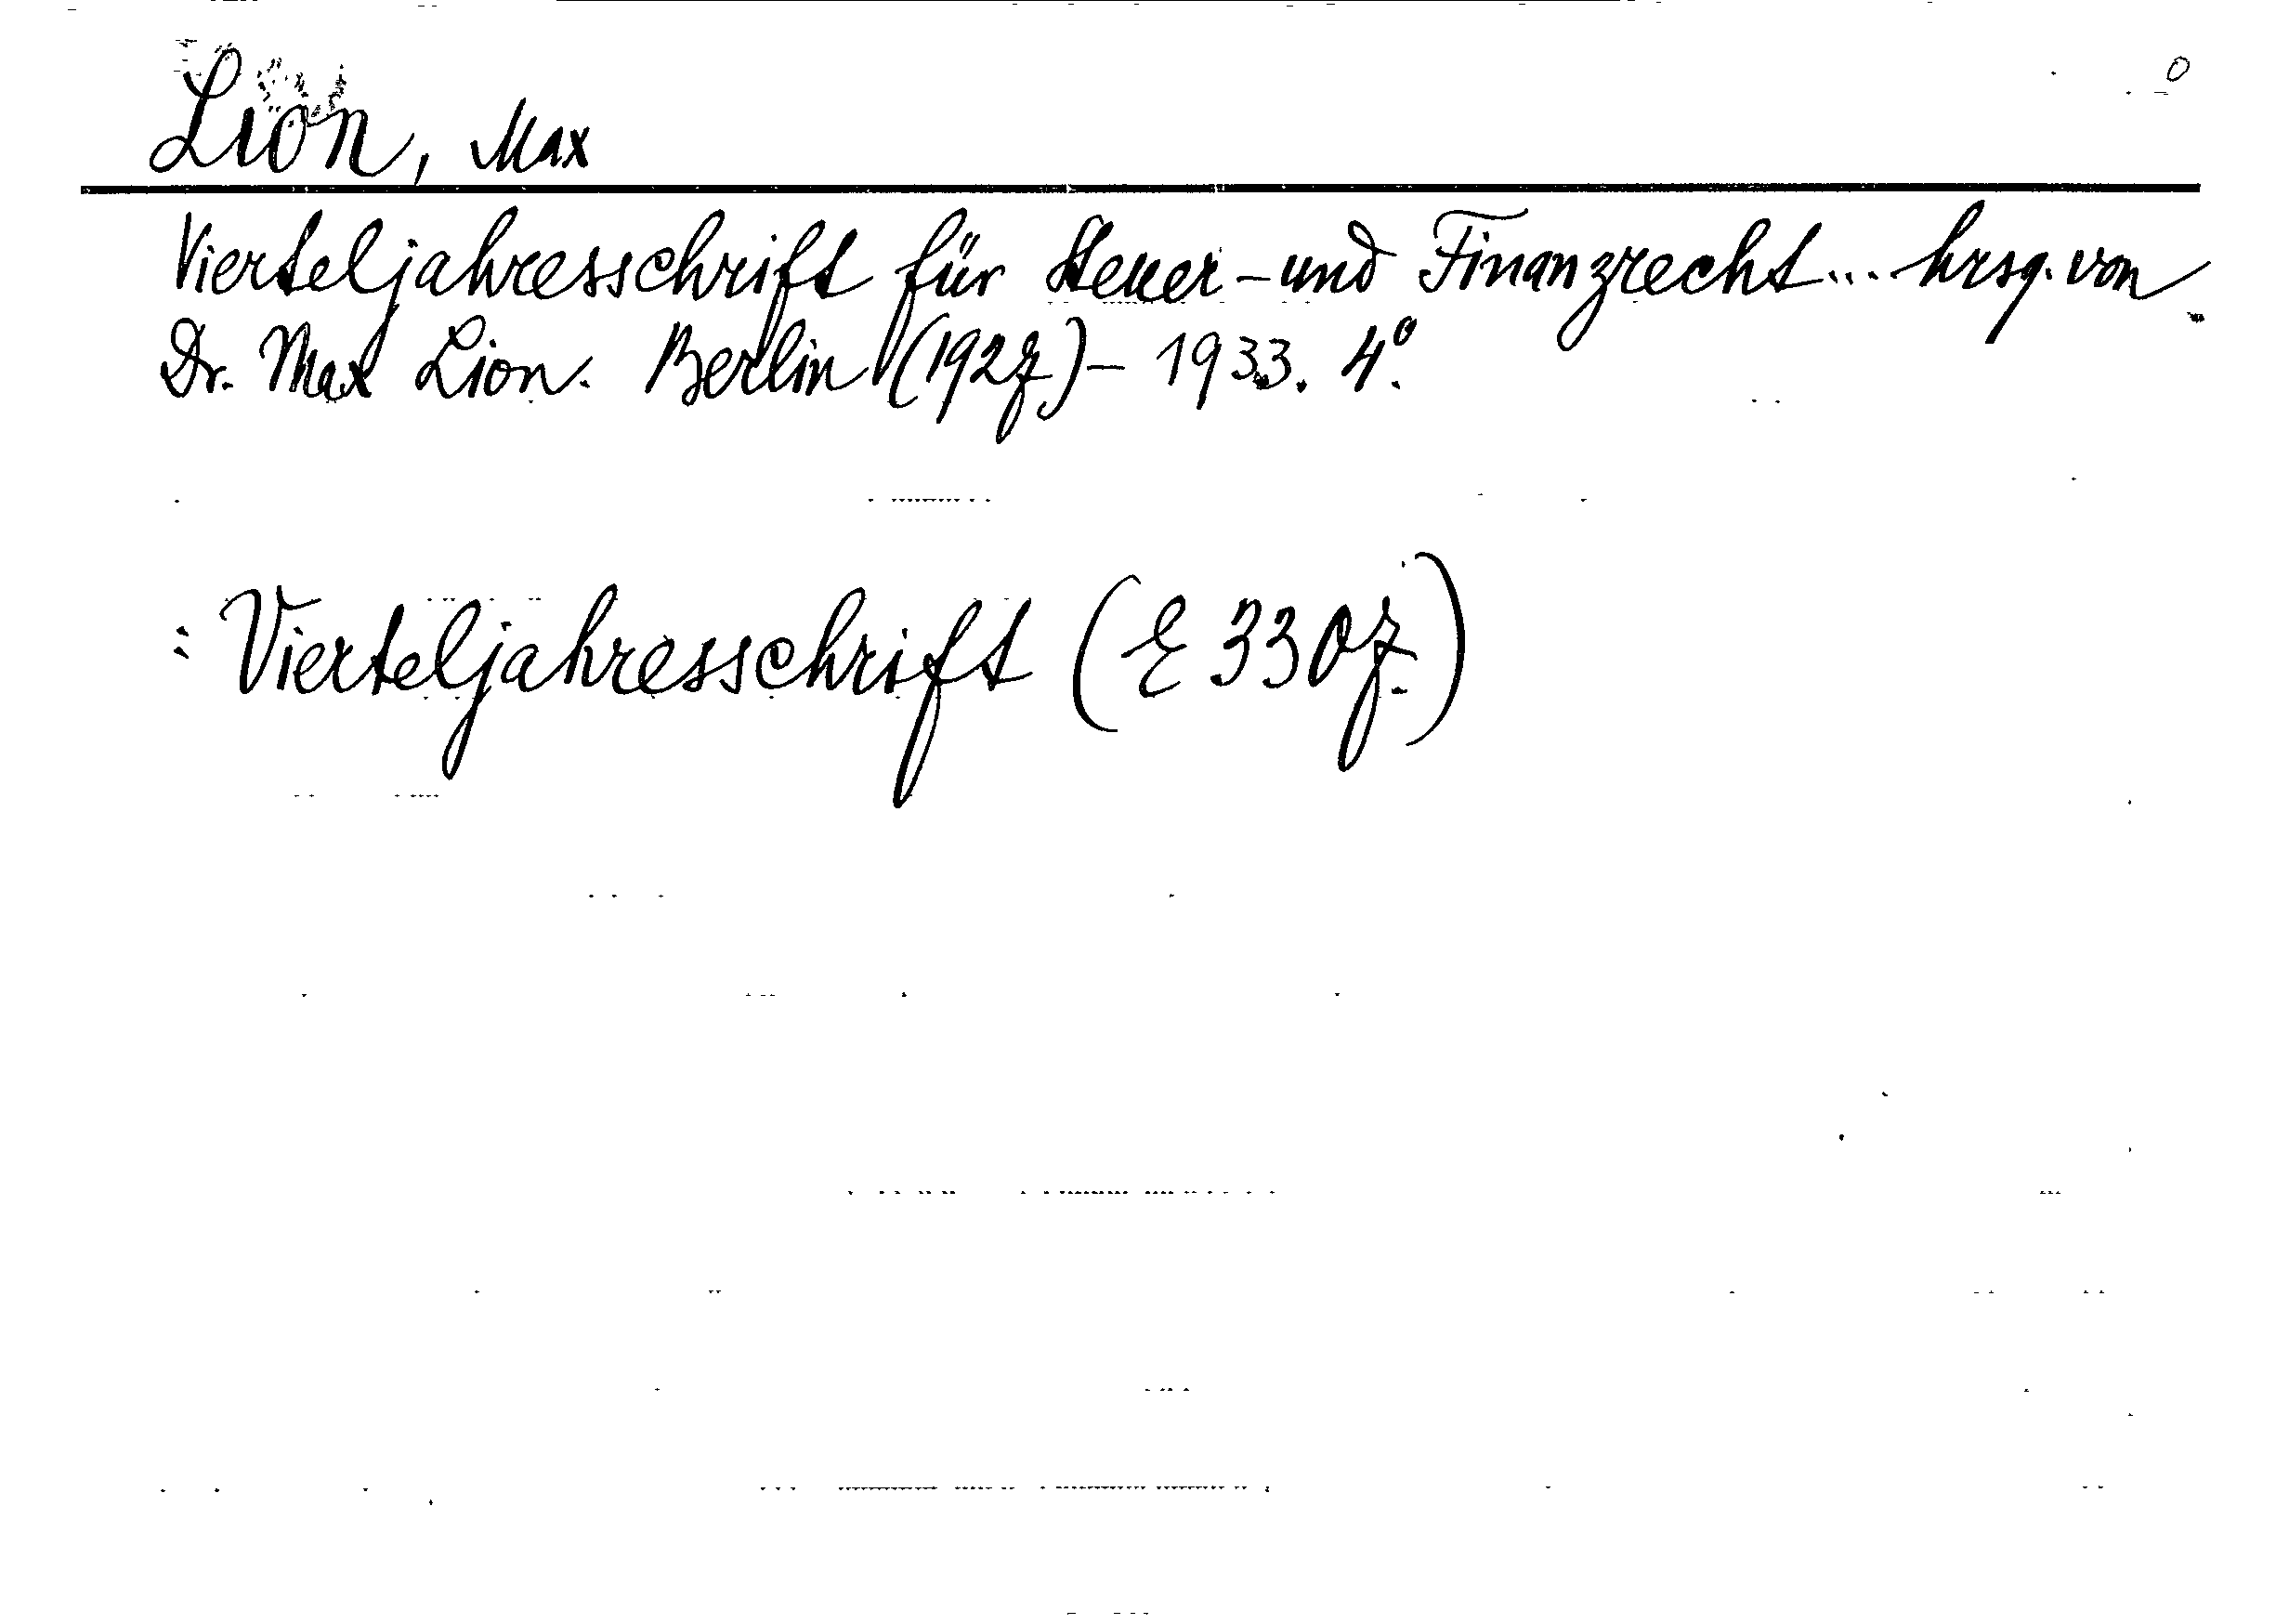 Lion, Max
Vierteljahresschrift für Steuer-und Finanzrecht... hrsg. von
Dr. Max Lion. Berlin (1927)- 1933. 4º.
: Vierteljahresschrift (E 330f.)